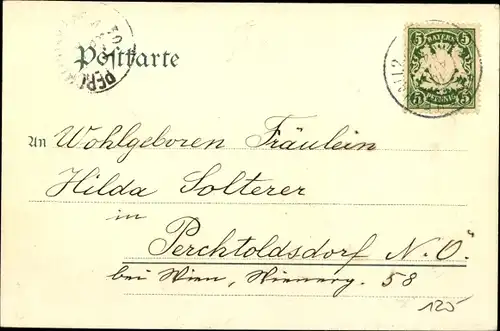 Postkarte
5 BAYERN 5
5 PFENNIG 5
An Wohlgeboren Fräulein
Hilda Solterer
in
Perchtoldsdorf N. Ö.
bei Wien, Wienerg. 58
125